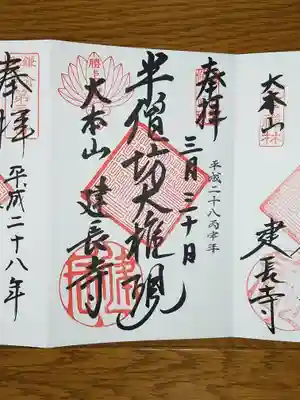 大本山
建長寺
奉拝
平成二十八丙申年
三月三十日
半僧坊大権現
勝上
大本山 建長寺
奉拝
平成二十八年